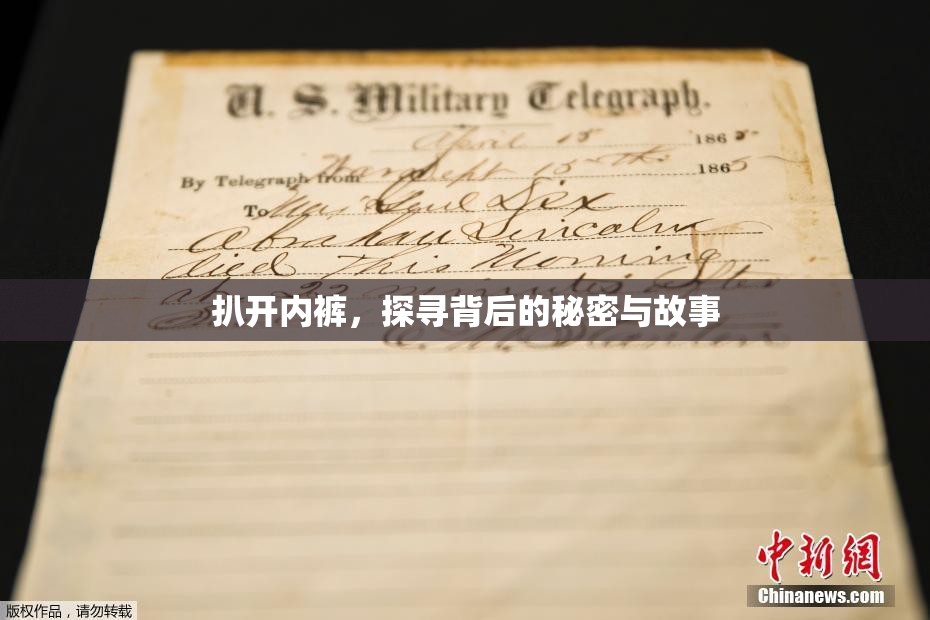 U. S. Military Telegraph.
April 15 1865
By Telegraph from War Dept 15th 1865
To Maj Genl Dix
Abraham Lincoln
died This Morning
at 22 minutes after
扒开内裤，探寻背后的秘密与故事
E. M. Stanton
中新网
Chinanews.com
版权作品，请勿转载